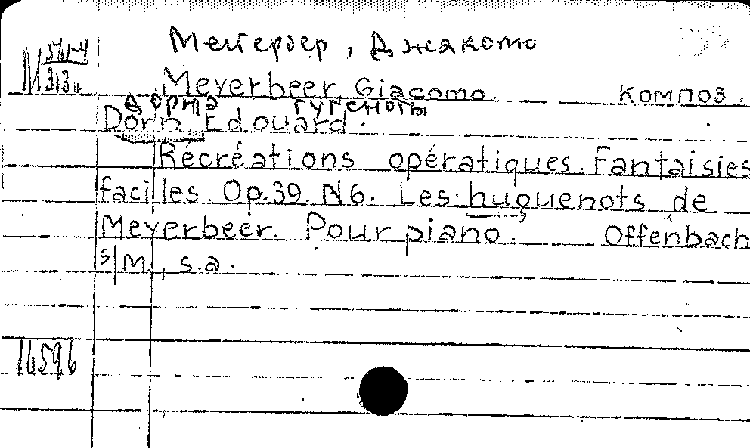 Мейербер, Джакомо
Meyerbeer, Giacomo. композ.
Дорна Гугеноты
Dorn Edouard.
Récréations opératiques. Fantaisies
faciles Op.39 N6. Les huguenots de
Meyerbeer. Pour piano. Offenbach
s/M., s.a.
16596